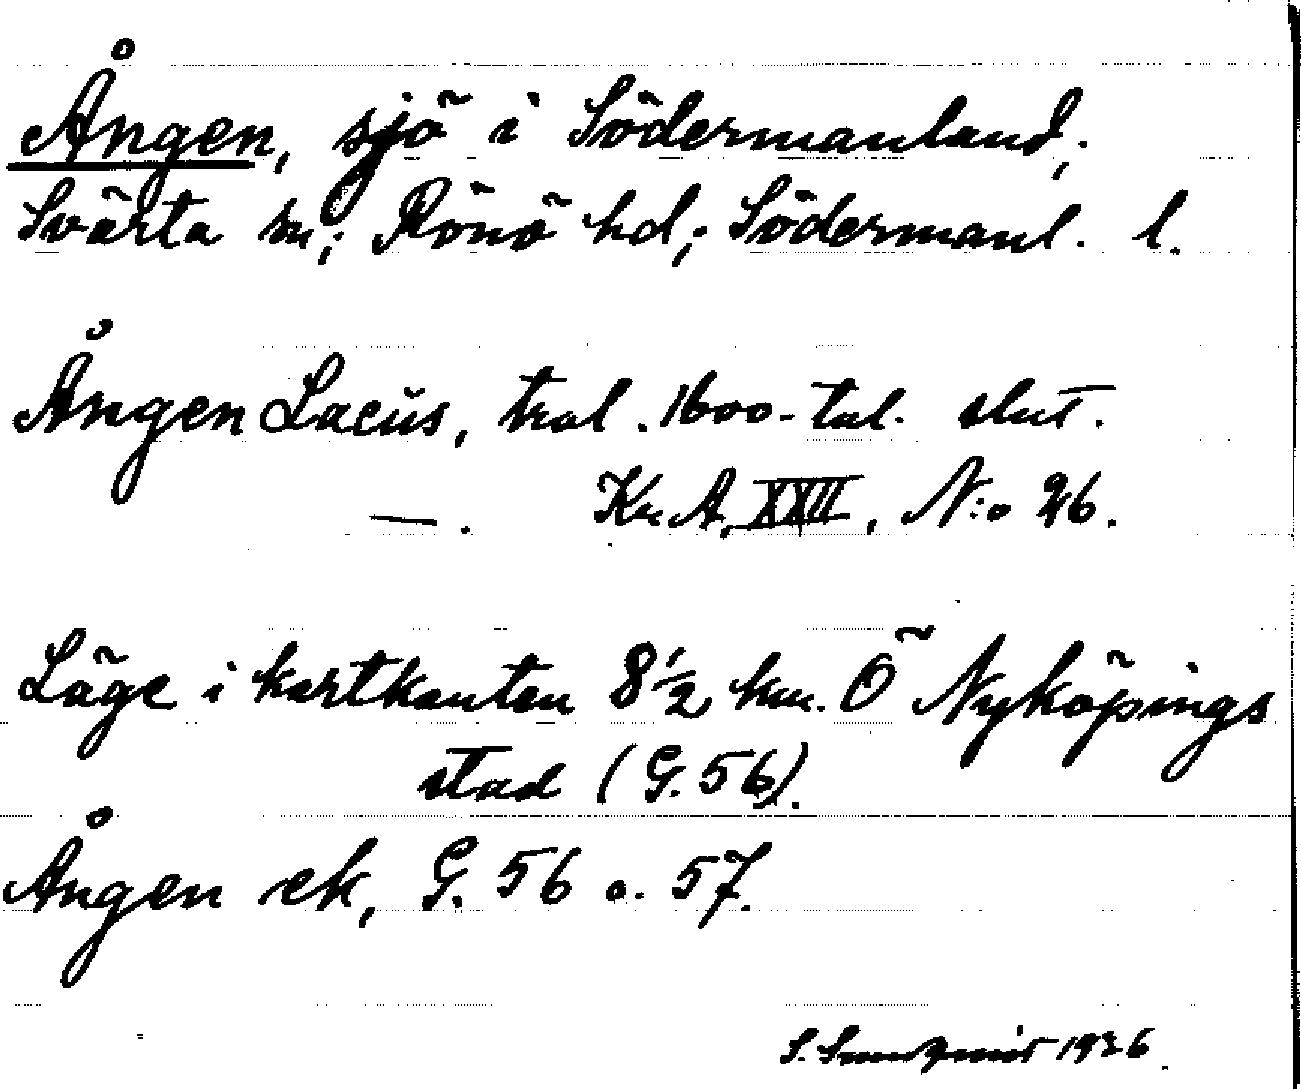 Ången, sjö i Södermanland;
Svärta sn; Rönö hd; Södermanl. l.
Ången Lacus, tral. 1600-tal. slut.
—. Kr.A. XXII, N:o 26.
Läge i kartkanten 8 1/2 km. Ö Nyköpings
stad (G. 56).
Ången ek, G. 56 o. 57.
S. 1936